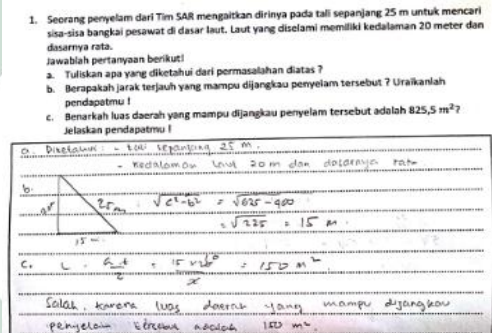 1. Seorang penyelam dari Tim SAR mengaitkan dirinya pada tali sepanjang 25 m untuk mencari
sisa-sisa bangkai pesawat di dasar laut. Laut yang diselami memiliki kedalaman 20 meter dan
dasarnya rata.
Jawablah pertanyaan berikut!
a. Tuliskan apa yang diketahui dari permasalahan diatas ?
b. Berapakah jarak terjauh yang mampu dijangkau penyelam tersebut ? Uraikanlah
pendapatmu !
c. Benarkah luas daerah yang mampu dijangkau penyelam tersebut adalah 825,5 m²?
Jelaskan pendapatmu !
a. Diketahui : - tali sepanjang 25 m.
- Kedalaman laut 20 m dan dasarnya rata
b.
25 m √c²-b² = √625-400
= √225 = 15 m.
15 m.
c. L = a.t/2 = 15 x 20/2 = 150 m²
Salah, karena luas daerah yang mampu dijangkau
penyelam tersebut adalah 150 m².